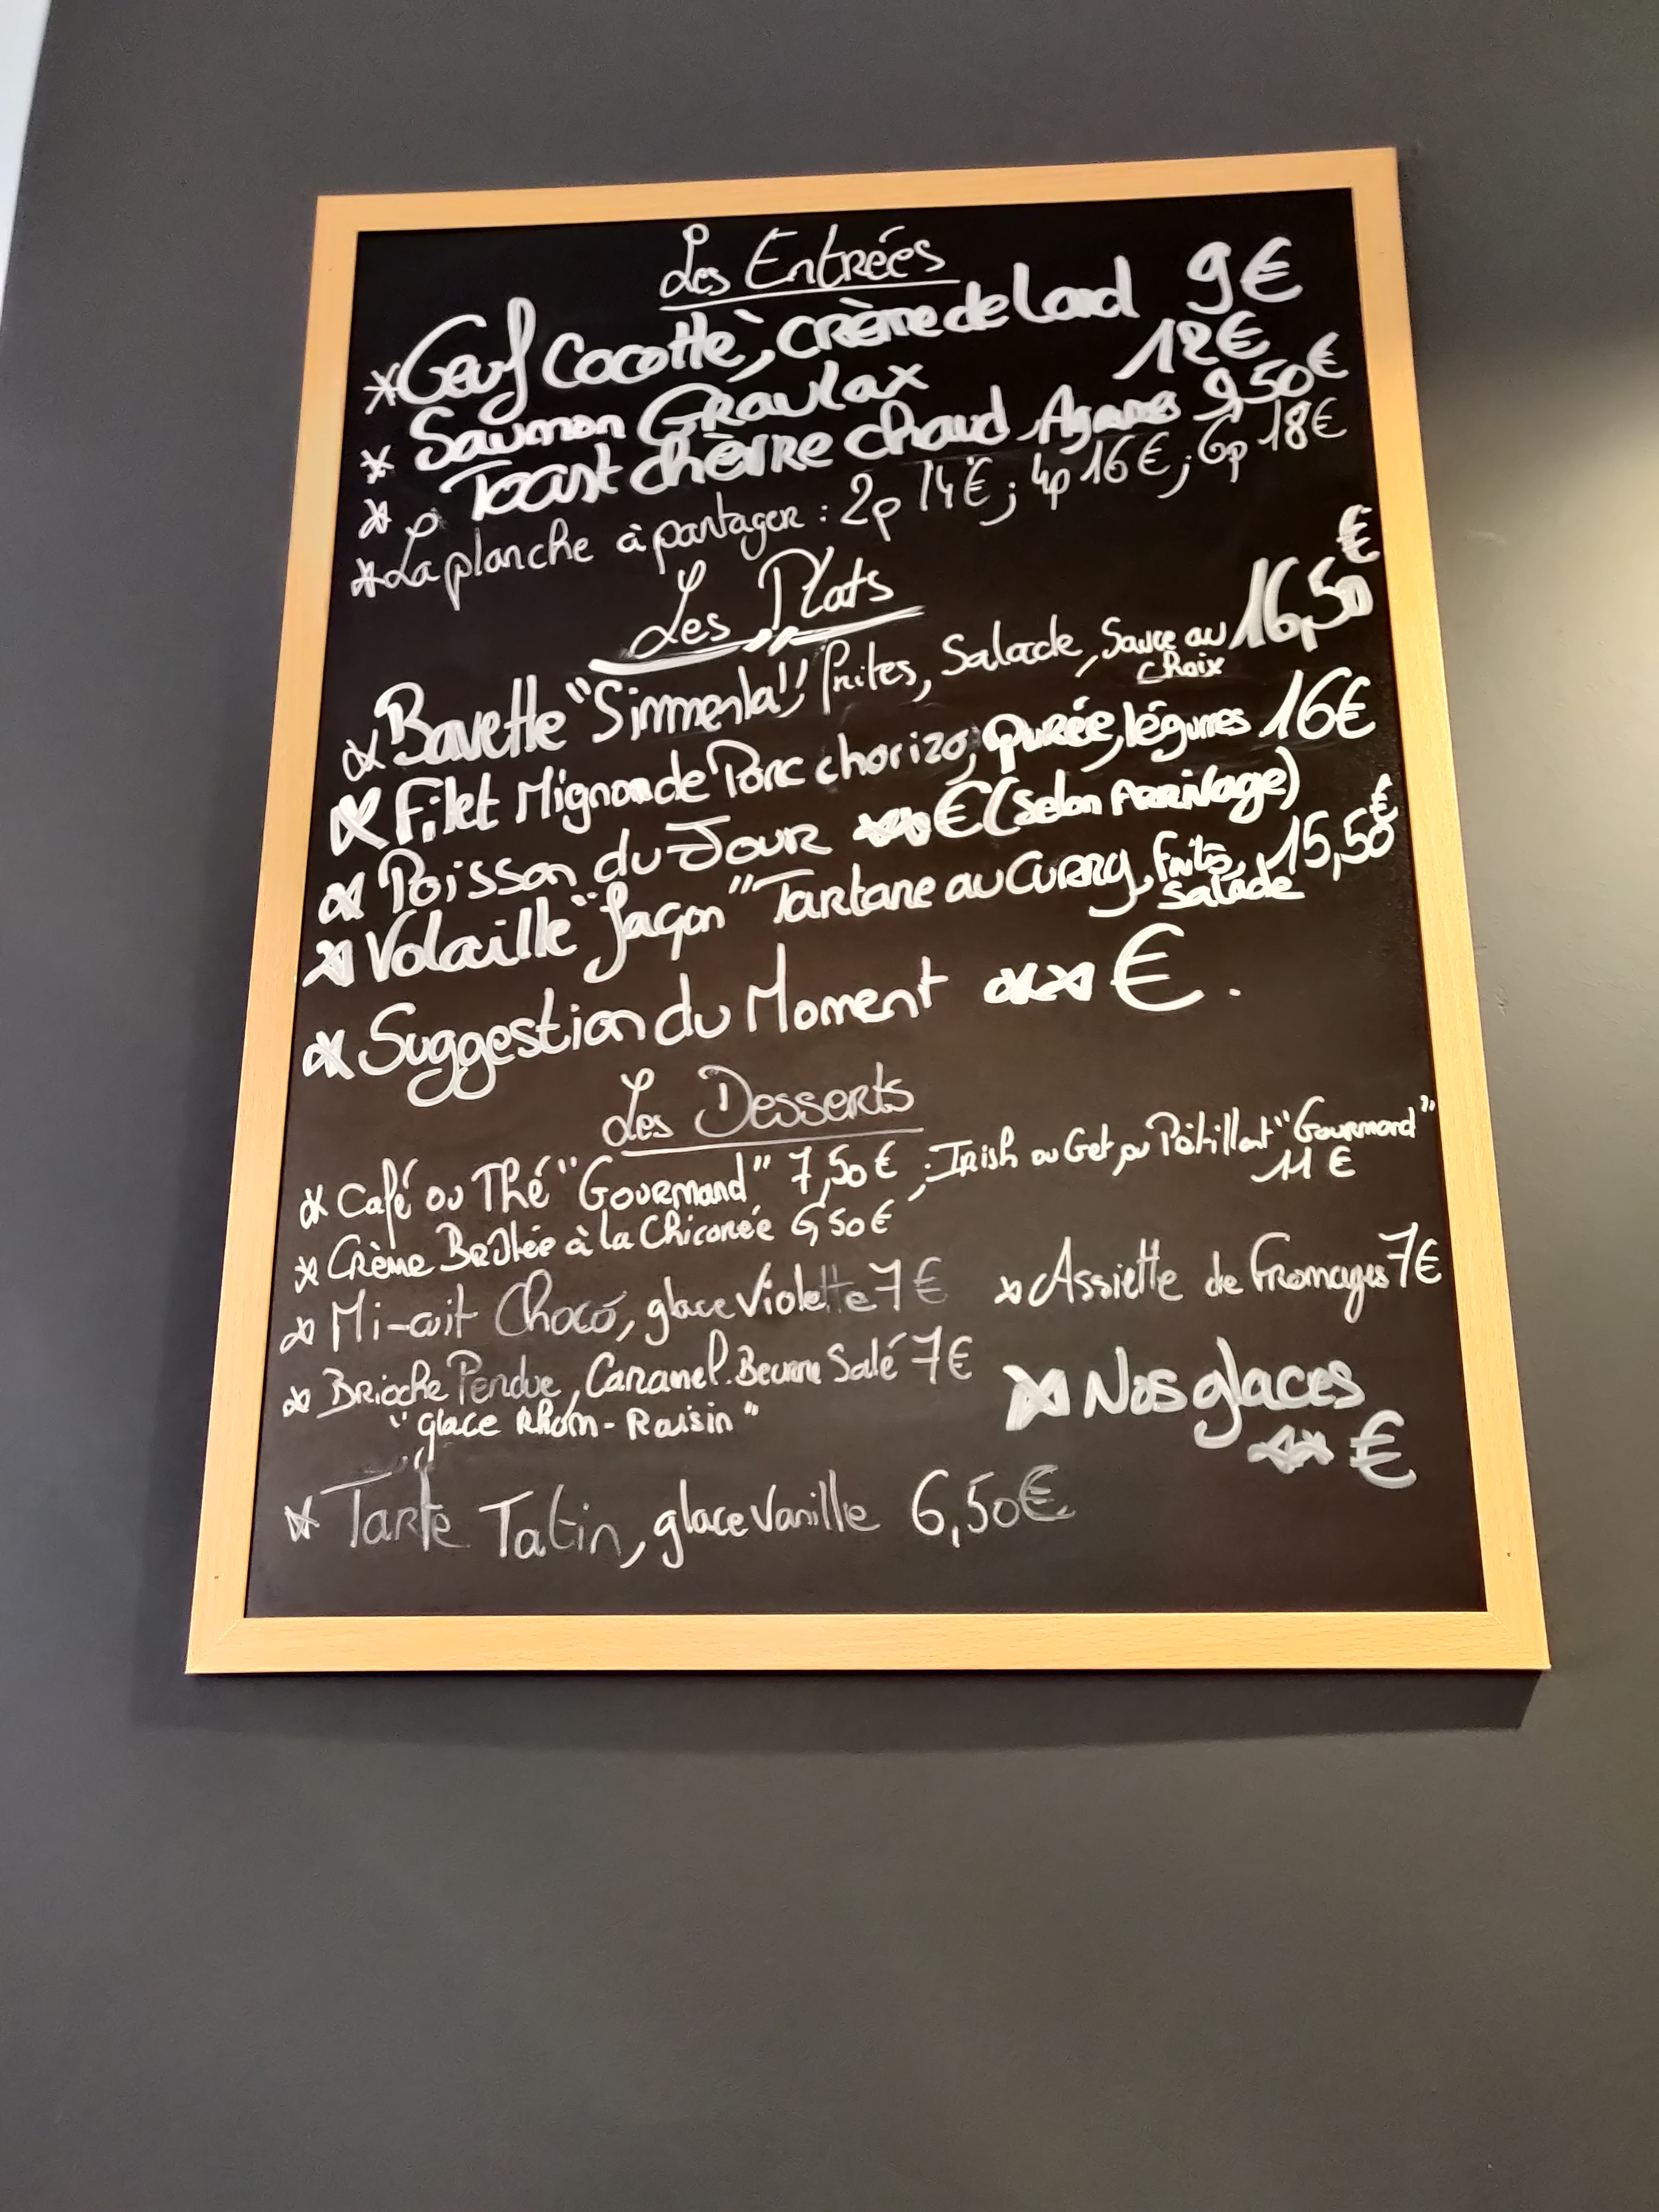 Les Entrées
* Oeuf Cocotte, crème de Lard 9€
* Saumon Gravlax 12€
* Toast chèvre chaud, Agrumes 9,50€
* La planche à partager : 2p 14€ ; 4p 16€ ; 6p 18€
Les Plats
* Bavette "Simmental", frites, Salade, Sauce au choix 16,50€
* Filet Mignon de Porc chorizo, purée, légumes 16€
* Poisson du Jour *** € (selon Arrivage)
* Volaille "façon" Tartane au Curry, frites, Salade 15,50€
* Suggestion du Moment *** € .
Les Desserts
* Café ou Thé "Gourmand" 7,50€ ; Irish ou Get ou Pétillant "Gourmand" 11€
* Crème Brûlée à la Chicorée 6,50€
* Mi-cuit Choco, glace Violette 7€
* Assiette de Fromages 7€
* Brioche Perdue, Caramel Beurre Salé 7€
"glace Rhum-Raisin"
* Nos glaces
** €
* Tarte Tatin, glace Vanille 6,50€